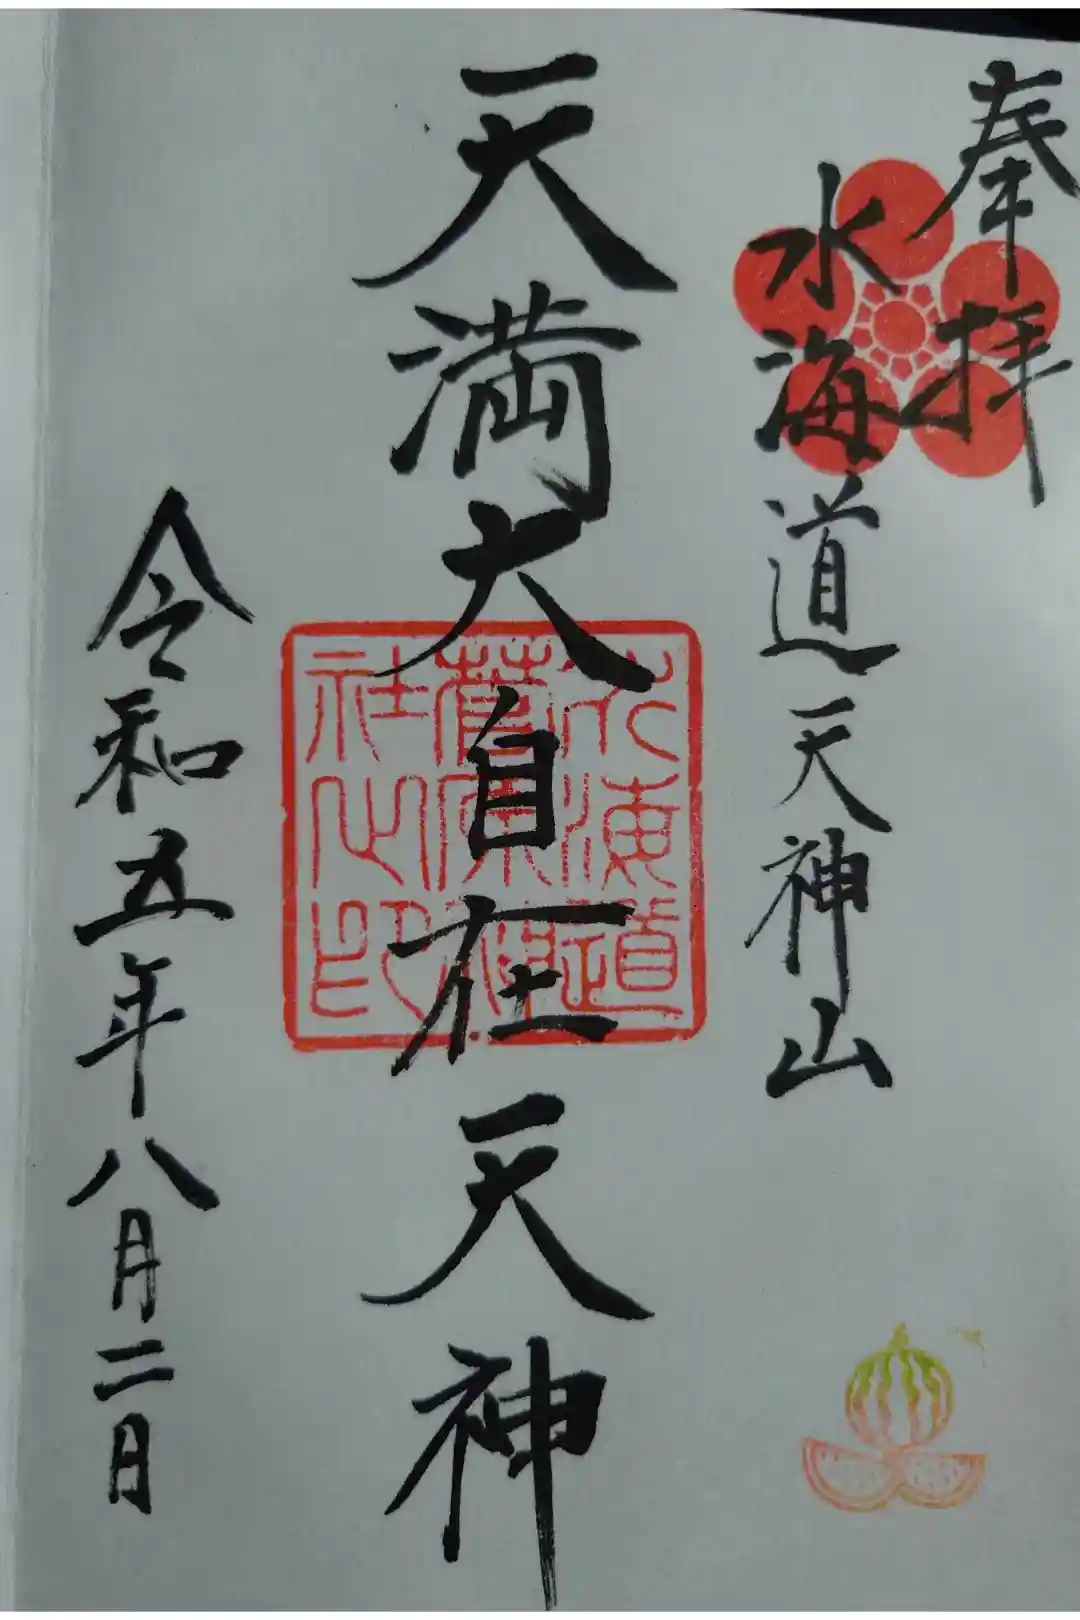 奉拝
水海道天神山
天満大自在天神
水海道
菅原神
社之印
令和五年八月二日